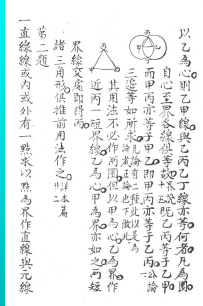 以乙為心則乙甲線與乙丙乙丁線亦等何者凡為圜
自心至界各線俱等故界說十五既乙丙等于乙甲
而甲丙亦等于甲乙即甲丙亦等于乙丙公論一
三邊等如所求凡論有二種此以是為論者正論也下倣此
其用法不必作兩圜但以甲為心乙為界作
近丙一短界線乙為心甲為界亦如之兩短
界線交處即得丙
諸三角形俱推前用法作之詳本篇廿二
第二題
一直線線或內或外有一點求以點為界作直線與元線